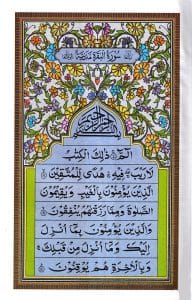 سُوْرَةُ الْبَقَرَةِ مَدَنِيَّةٌ
بِسْمِ اللهِ الرَّحْمٰنِ الرَّحِيْمِ
الٓمّٓ ۚ ذٰلِكَ الْكِتٰبُ
لَا رَيْبَ ۛ فِيْهِ ۛ هُدًى لِّلْمُتَّقِيْنَ
الَّذِيْنَ يُؤْمِنُوْنَ بِالْغَيْبِ وَيُقِيْمُوْنَ
الصَّلٰوةَ وَمِمَّا رَزَقْنٰهُمْ يُنْفِقُوْنَ
وَالَّذِيْنَ يُؤْمِنُوْنَ بِمَآ اُنْزِلَ
اِلَيْكَ وَمَآ اُنْزِلَ مِنْ قَبْلِكَ
وَبِالْاٰخِرَةِ هُمْ يُوْقِنُوْنَ